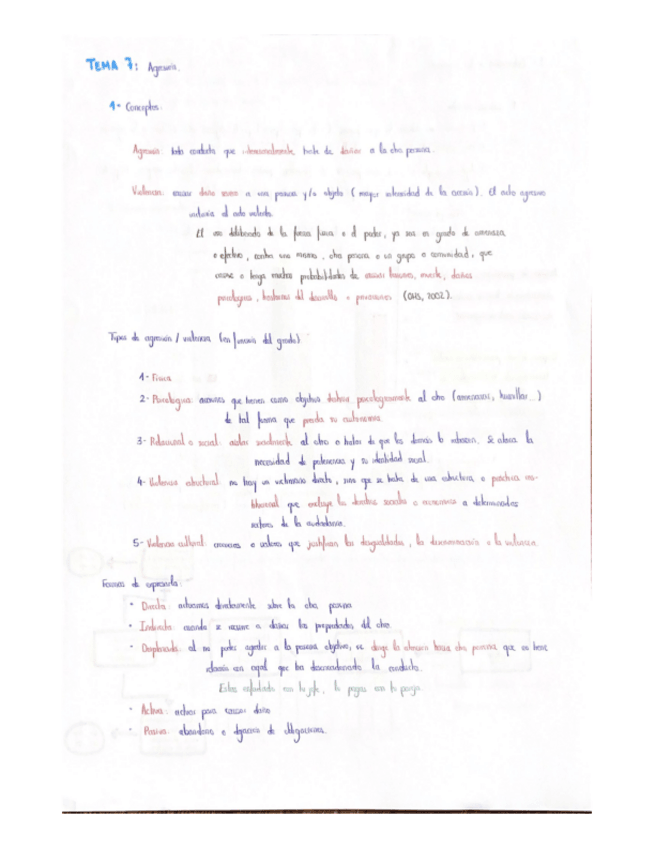 TEMA 7: Agresión.
1- Conceptos:
Agresión: toda conducta que intencionadamente trata de dañar a la otra persona.
Violencia: causar daño a una persona y/o objeto (mayor intensidad de la acción). El acto agresivo
incluiría el acto violento.
El uso deliberado de la fuerza física o el poder, ya sea en grado de amenaza
o efectivo, contra uno mismo, otra persona o un grupo o comunidad, que
cause o tenga muchas probabilidades de causar lesiones, muerte, daños
psicológicos, trastornos del desarrollo o privaciones (OMS, 2002).
Tipos de agresión / violencia (en función del grado)
1- Física
2- Psicológica: acciones que tienen como objetivo dañar psicológicamente al otro (amenazas, humillar...)
de tal forma que pierda su autonomía.
3- Relacional o social: aislar socialmente al otro o tratar de que los demás lo rechacen. Se ataca la
necesidad de pertenencia y su identidad social.
4- Violencia estructural: no hay un victimario directo, sino que se trata de una estructura o práctica ins-
titucional que excluye los derechos sociales o económicos a determinados
sectores de la ciudadanía.
5- Violencia cultural: creencias o valores que justifican las desigualdades, la discriminación o la violencia.
Formas de expresarla:
• Directa: actuamos directamente sobre la otra persona
• Indirecta: cuando se recurre a dañar las propiedades del otro.
• Desplazada: al no poder agredir a la persona objetivo, se dirige la agresión hacia otra persona que no tiene
relación con aquel que ha desencadenado la conducta.
Estás enfadada con tu jefe, lo pagas con tu pareja.
• Activa: actuar para causar daño
• Pasiva: abandono o dejación de obligaciones.